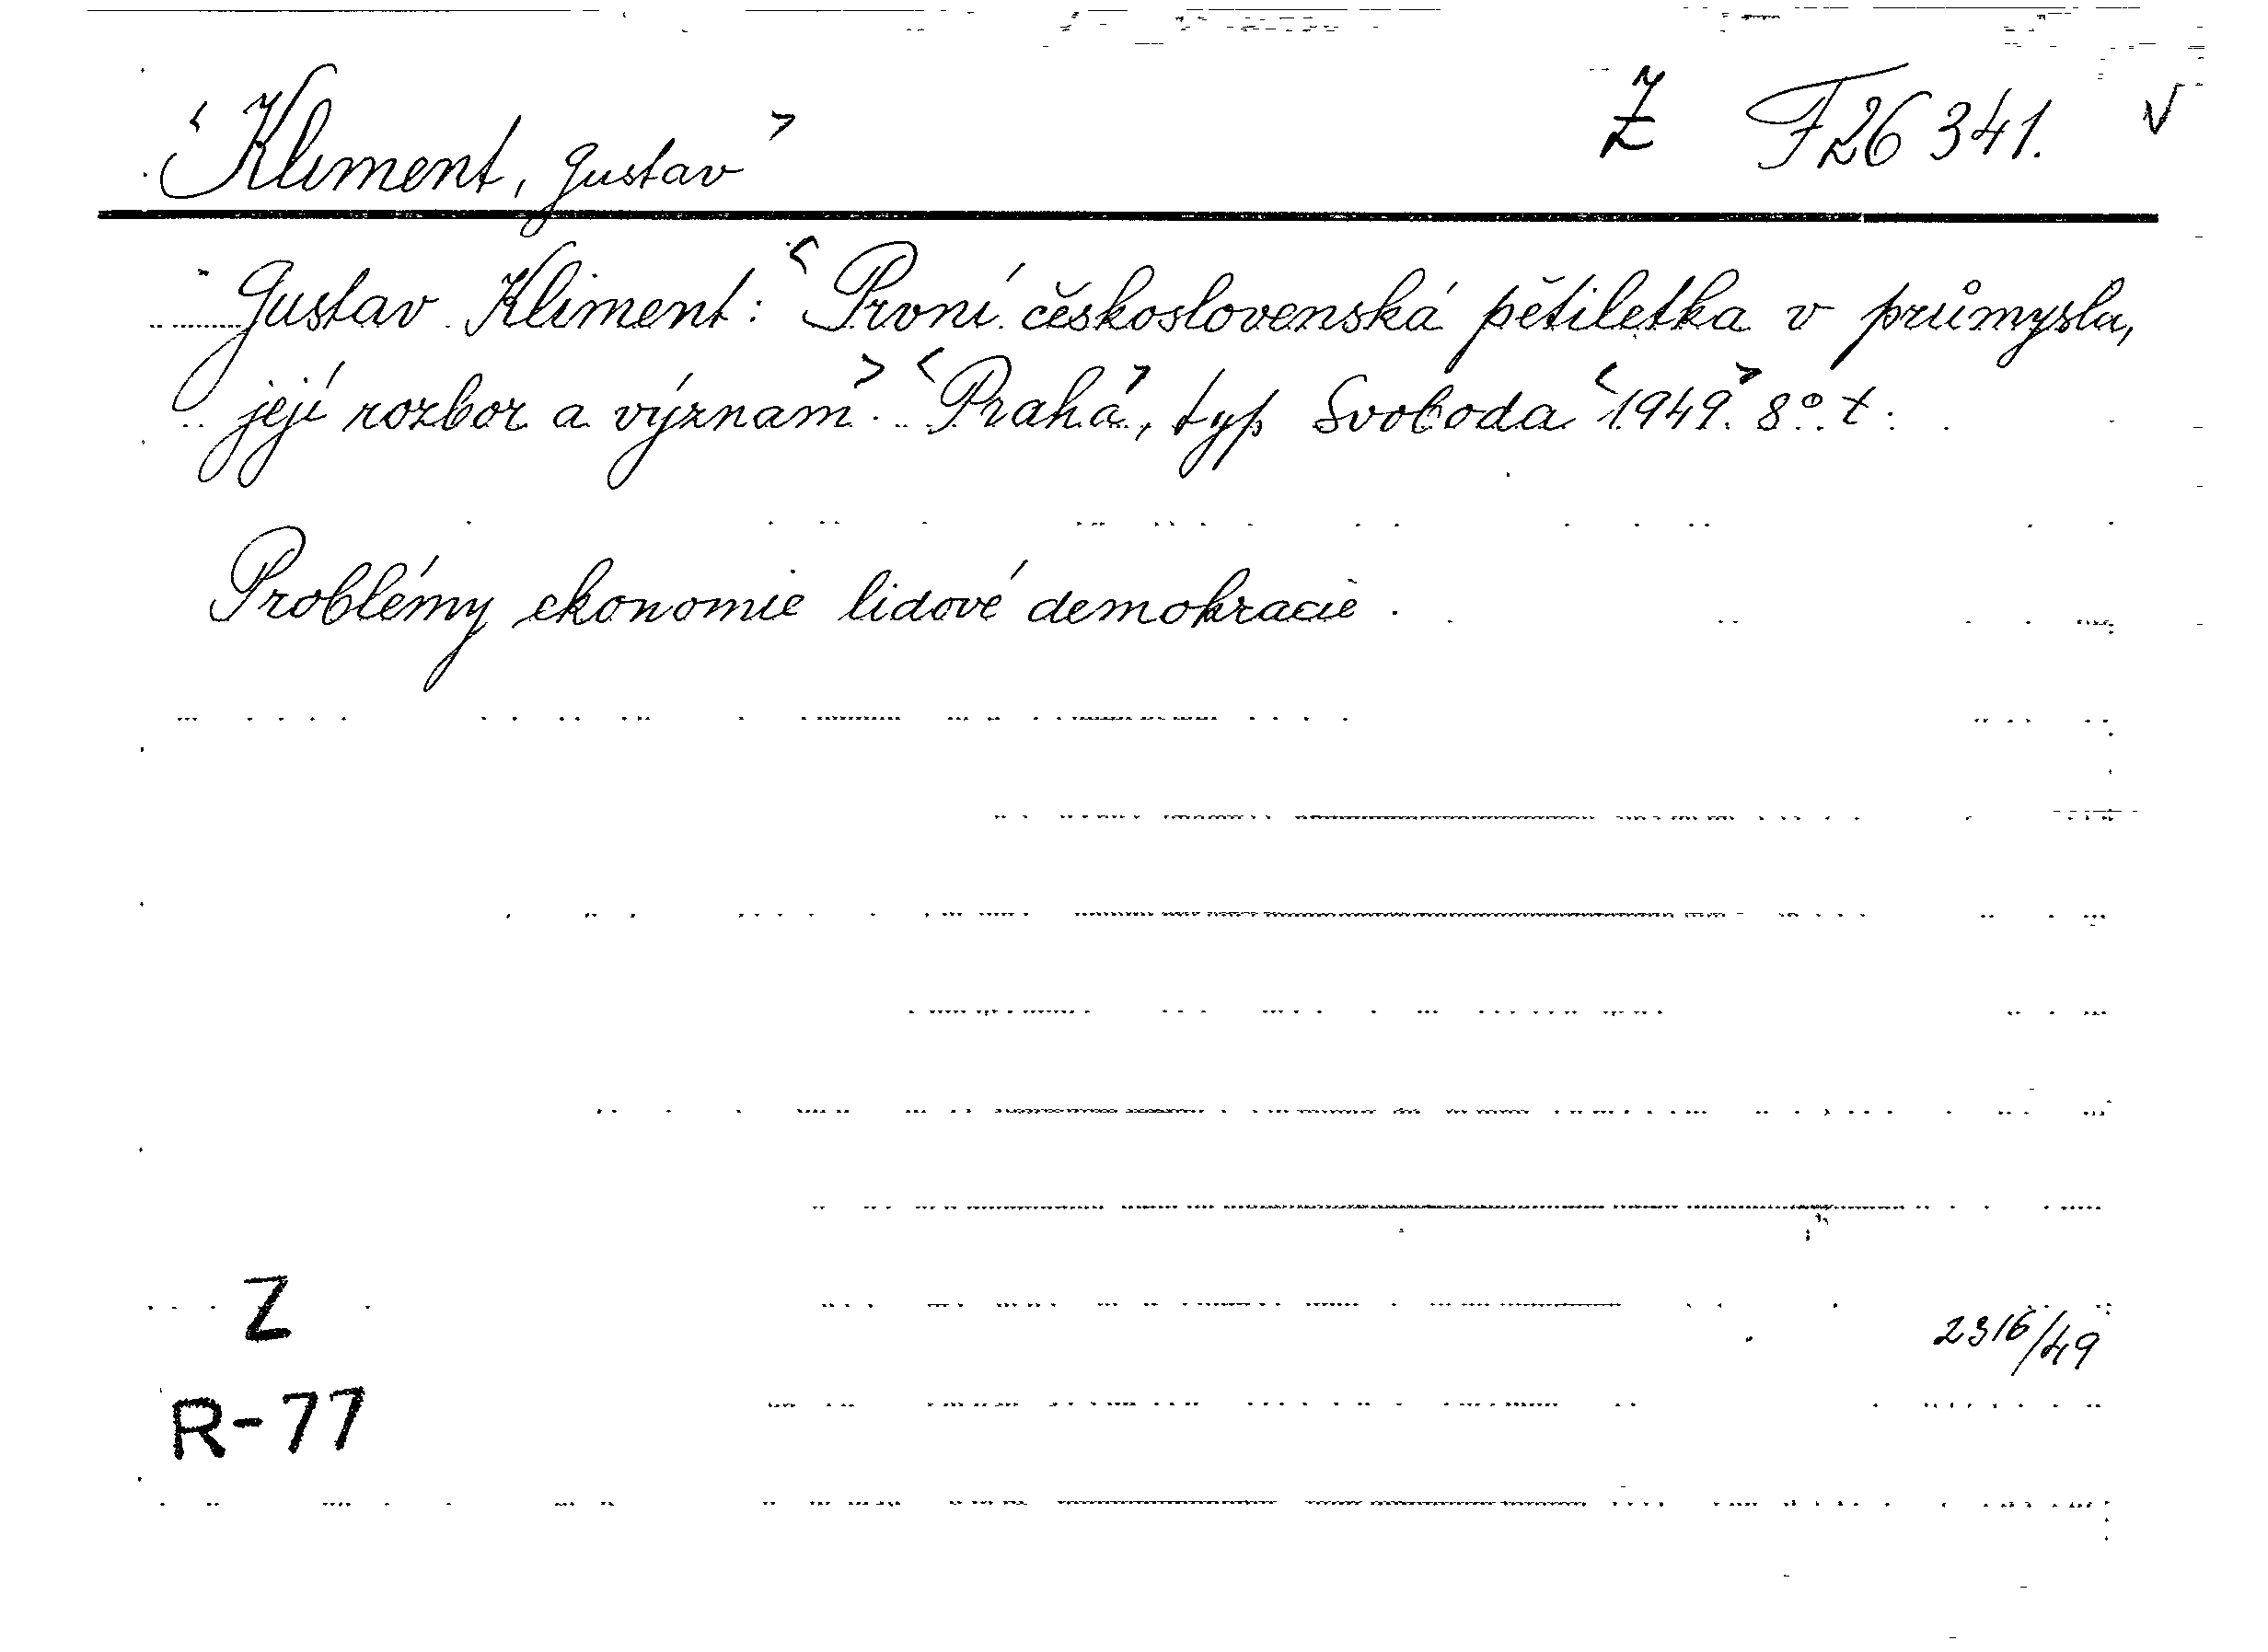 <Kliment, Gustav> Z F 26 341. V
Gustav Kliment: <První československá pětiletka v průmyslu,
její rozbor a význam>. <Praha>, typ Svoboda <1949>. 8°. t.
Problémy ekonomie lidové demokracie.
Z
2316/49
R-77